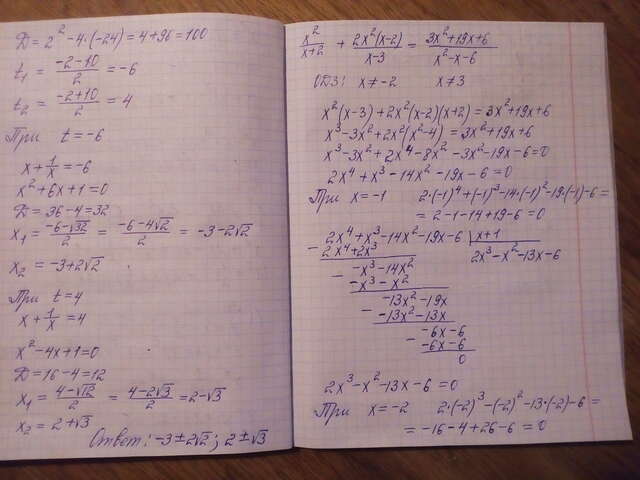 D = 2² - 4·(-24) = 4+96 = 100
t₁ = (-2-10)/2 = -6
t₂ = (-2+10)/2 = 4
При t = -6
x + 1/x = -6
x² + 6x + 1 = 0
D = 36 - 4 = 32
x₁ = (-6-√32)/2 = (-6-4√2)/2 = -3-2√2
x₂ = -3+2√2
При t = 4
x + 1/x = 4
x² - 4x + 1 = 0
D = 16 - 4 = 12
x₁ = (4-√12)/2 = (4-2√3)/2 = 2-√3
x₂ = 2+√3
Ответ: -3±2√2; 2±√3
x²/(x+2) + 2x²(x-2)/(x-3) = (3x²+19x+6)/(x²-x-6)
ОДЗ: x ≠ -2 x ≠ 3
x²(x-3) + 2x²(x-2)(x+2) = 3x²+19x+6
x³-3x²+2x²(x²-4) = 3x²+19x+6
x³-3x²+2x⁴-8x²-3x²-19x-6=0
2x⁴+x³-14x²-19x-6=0
При x = -1 2·(-1)⁴+(-1)³-14·(-1)²-19·(-1)-6=
= 2-1-14+19-6=0
2x⁴+x³-14x²-19x-6 | x+1
- 2x⁴+2x³ 2x³-x²-13x-6
- -x³-14x²
-x³-x²
- -13x²-19x
-13x²-13x
- -6x-6
-6x-6
0
2x³-x²-13x-6=0
При x = -2 2·(-2)³-(-2)²-13·(-2)-6=
= -16-4+26-6=0